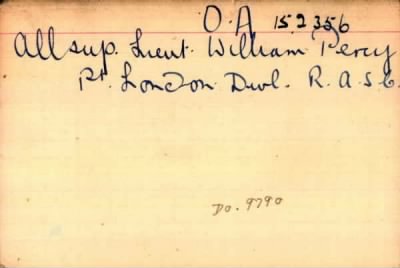 O.A 152356
Allsup. Lieut. William Percy
Pt. London Divl. R.A.S.C.
Do. 9790